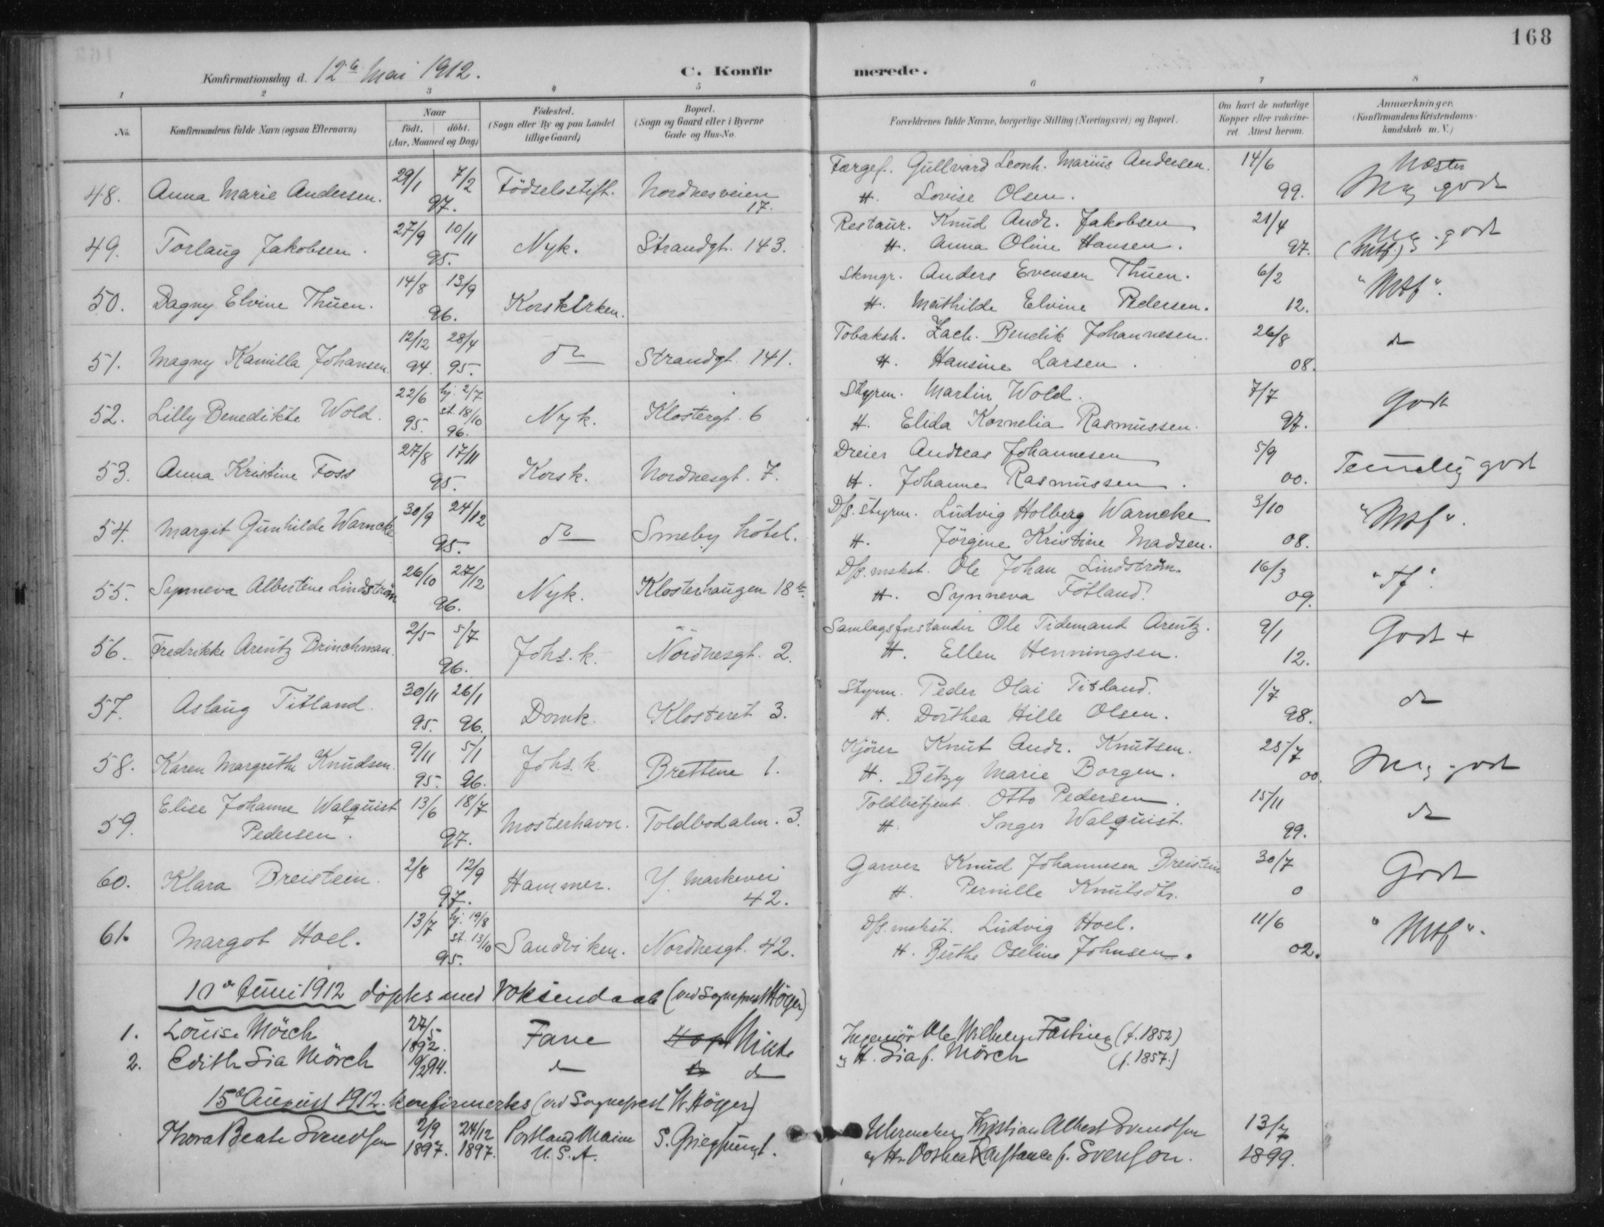 168
Konfirmationsdag d. 12te Mai 1912. C. Konfirmerede.
1 2 3 4 5 6 7 8
No. Konfirmandens fulde Navn (ogsaa Efternavn) Naar født, døbt. (Aar, Maaned og Dag) Fødested. (Sogn eller By og paa Landet tillige Gaard) Bopæl. (Sogn og Gaard eller i Byerne Gade og Hus-No. Forældrenes fulde Navne, borgerlige Stilling (Næringsvei) og Bopæl. Om havt de naturlige Kopper eller vaksineret Attest herom. Anmærkninger. (Konfirmandens Kristendomskundskab m. V.)
48. Anna Marie Andersen. 29/1 7/2 97. Fødselsstift. Nordnesveien 17. Færgef. Gullvard Leonh. Marius Andersen. H. Lovise Olsen. 14/6 99. Næsten Meg godt
49. Torlaug Jakobsen. 27/9 10/11 95. Nyk. Strandgt. 143. Restaur. Knud Andr. Jakobsen H. Anna Oline Hansen. 21/4 97. Meg. godt (Mtf.)
50. Dagny Elvine Thuen. 14/8 13/9 96. Korskirken. Skmgr. Anders Evensen Thuen. H. Mathilde Elvine Pedersen. 6/2 12. "Mtf".
51. Magny Kamilla Johansen 12/12 94. 28/4 95. do Strandgt. 141. Tobaksh. Zach. Bendik Johannesen. H. Hansine Larsen. 26/8 08. do
52. Lilly Benedikte Wold. 22/6 95. hj. 2/7 st. 18/10 96. Nyk. Klostergt. 6 Styrm. Martin Wold. H. Elida Kornelia Rasmussen. 7/7 97. Godt
53. Anna Kristine Foss 27/8 17/11 95. Korsk. Nordnesgt. 7. Dreier Andreas Johannesen H. Johanne Rasmussen. 5/9 00. Temmelig godt
54. Margit Gunhilde Warncke 30/9 24/12 95. do Smeby hotel. Dfs. styrm. Ludvig Holberg Warncke H. Jørgine Kristine Madsen. 3/10 08. "Mtf".
55. Synneva Albertine Lindstrøm 26/10 27/12 96. Nyk. Klosterhaugen 18 Dfs. mskst. Ole Johan Lindstrøm H. Synneva Føtland. 16/3 09. "Tf".
56. Fredrikke Arentz Brinchman. 2/5 5/7 96. Johs. k. Nordnesgt. 2. Samlagsforstander Ole Tidemand Arentz. H. Ellen Henningsen. 9/1 12. Godt +
57. Aslaug Titland. 30/11 95. 26/1 96. Domk. Klosteret 3. Styrm. Peder Olai Titland. H. Dorthea Hille Olsen. 1/7 98. do
58. Karen Margrethe Knudsen. 9/11 95. 5/1 96. Johs. k. Brettene 1. Kjører Knut Andr. Knutsen. H. Betzy Marie Borgen. 25/7 00. Meg godt
59. Elise Johanne Walquist Pedersen. 13/6 18/7 97. Mosterhavn. Toldbodalm. 3. Toldbetjent Otto Pedersen. H. Inger Walquist. 15/11 99. do
60. Klara Breistein. 2/8 12/9 97. Hammer. Y. Markevei 42. Garver Knud Johannesen Breistein H. Pernille Knutsdtr. 30/7 0 Godt
61. Margot Hoel. 13/7 hj. 19/8 st. 13/10 95. Sandviken. Nordnesgt. 42. Dfs. mskst. Ludvig Hoel. H. Berthe Oseline Johnsen. 11/6 02. "Mtf".
10de Juni 1912 døptes med Voksendaab (ved Sogneprest Høyer)
1. Louise Mörch 27/5 1892. Fane Hop Minde Ingeniör Ole Wilhelm Fasting (f. 1852)
2. Edith Sia Mörch 94. do do og H. Sia f. Mörch (f. 1857.)
15de August 1912. konfirmertes (ved Sogneprest K. Høyer)
Thora Beate Svendsen 2/9 1897. 24/12 1897. Portland Maine U.S.A. S. Griegsmugt. Uhrmaker Kristian Albert Svendsen og H. Dorthea Konstance f. Svenson. 13/7 1899.